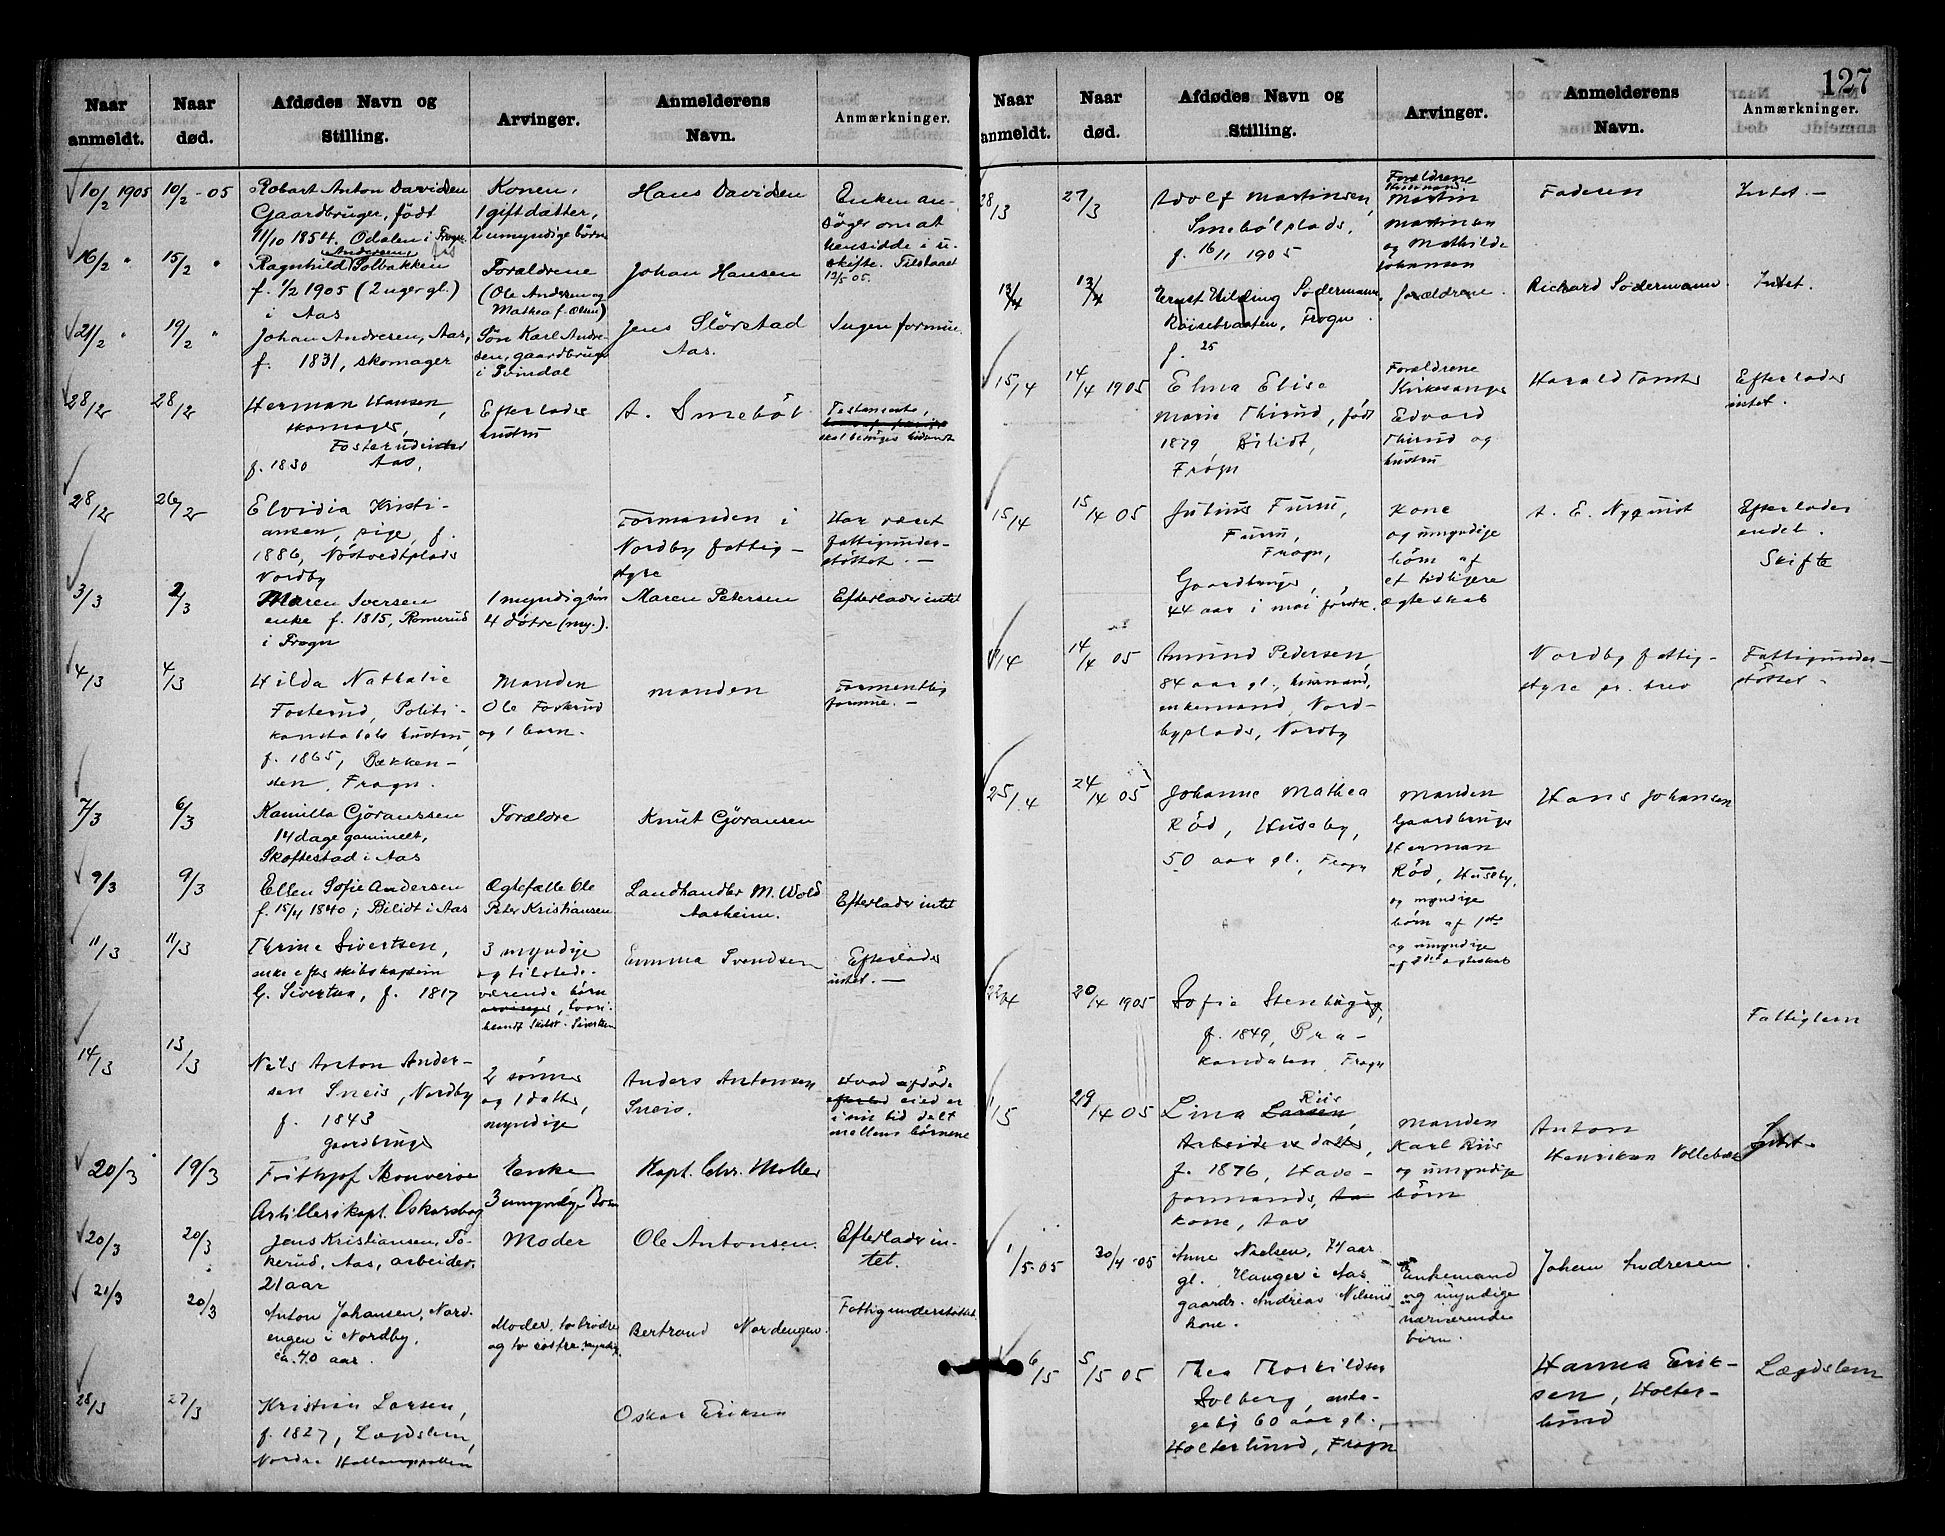 Naar anmeldt.
Naar død.
Afdødes Navn og Stilling.
Arvinger.
Anmelderens Navn.
Anmærkninger.
10/2 1905
10/2 - 05
Robart Anton Davidsen
Gaardbruger, født
11/10 1854. Odalen i Frogn
Konen,
1 gift datter,
2 umyndige børn
Hans Davidsen
Enken an-
søger om at
hensidde i u-
skifte. Tilstaaet
12/5 05.
16/2 "
15/2 "
Andersen
Ragnhild Solbakken
f. 1/2 1905 (2 uger gl.)
i Aas
Forældrene
(Ole Andersen og
Mathea f. Olsen)
Johan Hansen
21/2 "
19/2 "
Johan Andresen, Aas,
f. 1831, skomager
Søn Karl Andre-
sen, gaardbruger
i Svindal
Jens Slørstad
Aas.
Ingen formue.
28/2
28/2
Herman Hansen,
skomager,
Fosterudeie
Aas,
f. 1830
Efterlader
hustru
A. Smebøl
Testamente,
skal besørges hidsendt
28/2
26/2
Elvidia Kristi-
ansen, pige, f.
1886, Nøstvedtplads
Nordby
Formanden i
Nordby fattig-
styre
Har været
fattigunder-
støttet. —
3/3
2/3
Maren Iversen
enke f. 1815, Romerud
i Frogn
1 myndig søn
4 døtre (my.).
Maren Petersen
Efterlader intet
4/3
4/3
Hilda Nathalie
Fosterud, Politi-
konstabels hustru,
f. 1865, Bækken-
sten, Frogn.
Manden
Ole Fosterud
og 1 barn.
manden
Formentlig
formue. —
7/3
6/3
Kamilla Gjøranssen
14 dage gammelt,
Skoftestad i Aas
Forældre
Knut Gjøransen
9/3
9/3
Ellen Sofie Andersen
f. 15/4 1840, Bilidt i Aas
Ægtefælle Ole
Peter Kristiansen
Landhandler M. Wold
Aasheim.
Efterlader intet
11/3
11/3
Thrine Sivertsen,
enke efter skibskaptein
G. Sivertsen, f. 1817
3 myndige
og tilstede-
værende børn
arvinger, hvori-
blandt Skibst. Sivertsen
Emma Svendsen
Efterlader
intet. —
14/3
13/3
Nils Anton Ander-
sen Sneis, Nordby
f. 1843
gaardbruger
2 sønner
og 1 datter,
myndige
Anders Antonsen
Sneis.
Hvad afdøde
efterlod eied er
i sin tid delt
mellem børnene
20/3
19/3
Frithjof Skouverøe
Artillerikapt. Oskarsborg
Enke
3 umyndige Børn
Kapt. Chr. Møller
20/3
20/3
Jens Kristiansen, To-
kerud, Aas, arbeider,
21 aar
Moder
Ole Antonsen.
Efterlader in-
tet.
21/3
20/3
Anton Johansen, Nord-
engen i Nordby,
ca. 40 aar.
Moder, to brødre
og to søstre, myndig.
Bertrand Nordengen.
Fattigunderstøttet
28/3
27/3
Kristian Larsen,
f. 1827, Lægdslem,
Nordre Hallangspollen
Oskar Eriksen
127
Naar anmeldt.
Naar død.
Afdødes Navn og Stilling.
Arvinger.
Anmelderens Navn.
Anmærkninger.
28/3
27/3
Adolf Martinsen,
Smebølplads,
f. 16/11 1905
Forældrene
Husmand
Martin
Martinsen
og Mathilde
Johansen
Faderen
Intet —
13/4
13/4
Ernst Hilding Sødermann,
Røisebraaten, Frogn
f. 25
forældrene.
Richard Sødermann
Intet.
15/4
14/4 1905
Elma Elise
Marie Thirud, født
1879 Bilidt,
Frogn
Forældrene
Kirkesanger
Edvard
Thirud og
hustru
Harald Tomter
Efterlader
intet.
15/4
15/4 05
Julius Furu,
Furu,
Frogn,
Gaardbruger,
44 aar i mai førstk.
Kone
og umyndige
børn af
et tidligere
ægteskab
A. E. Nyquist
Efterlader
endel.
Skifte
/14
14/4 05
Amund Pedersen,
84 aar gl., husmand,
enkemand, Nord-
byplads, Nordby
Nordby fattig-
styre pr. brev
Fattigunder-
støttet —
25/4
24/4 05
Johanne Mathea
Rød, Huseby,
50 aar gl., Frogn
Manden
Gaardbruger
Herman
Rød, Huseby,
og myndige
børn af 1ste
og umyndige
af 2det ægteskab
Hans Johansen
22/4
20/4 1905
Sofie Stenbug,
f. 1849, Bra-
kandalen, Frogn
Fattiglem
1/5
29/4 05
Riis
Lina Larsen,
Arbeider datter,
f. 1876, Have-
formands,
kone, Aas
Manden
Karl Riis
og umyndige
børn
Anton
Henriksen Vollebæk
Intet.
1/5-05
30/4-05
Anne Nielsen, 74 aar
gl. Hauger i Aas
gaardbr. Andreas Nilsens
kone.
Enkemand
og myndige
nærværende
børn.
Johan Andresen
6/5
5/5 05
Thea Thorkildsen
Solberg, anta-
gelig 60 aar gl.,
Holterlund, Frogn
Hanna Erik-
sen, Holter-
lund
Lægdslem